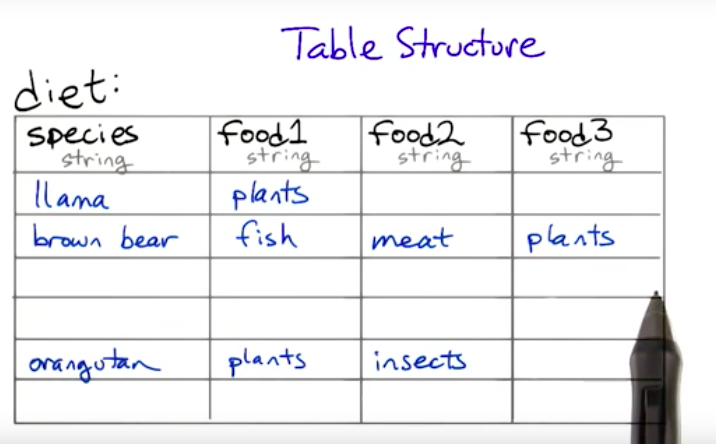 Table Structure
diet:
species food1 food2 food3
string string string string
llama plants
brown bear fish meat plants
orangutan plants insects